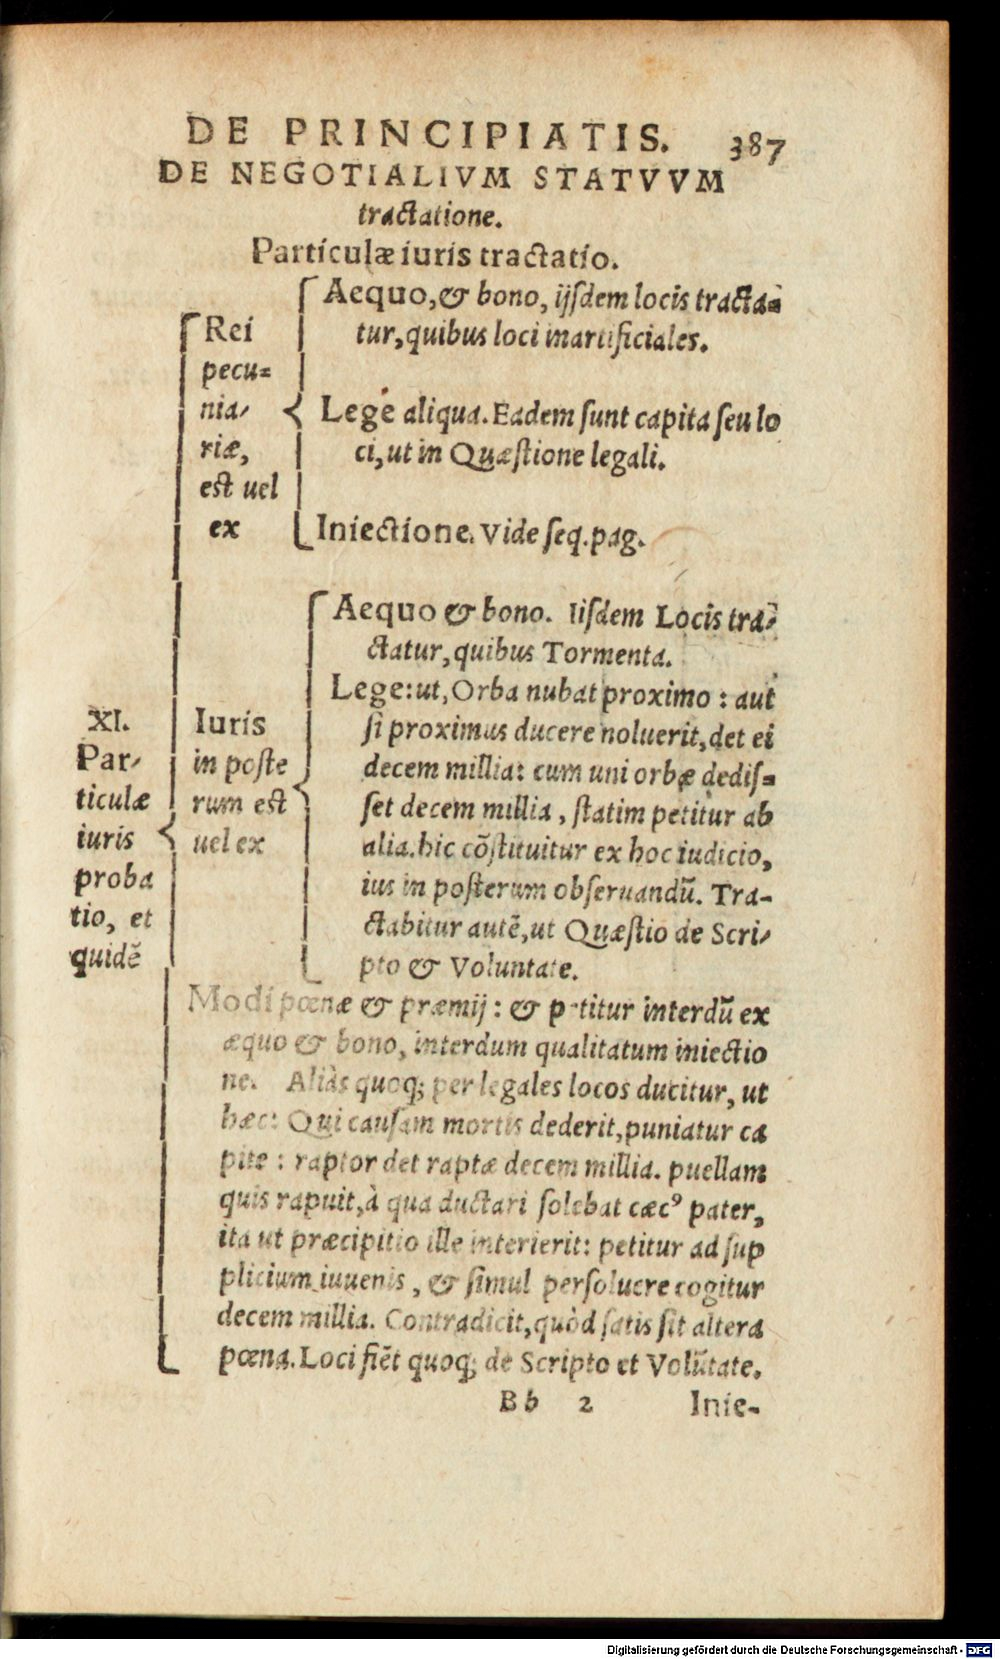 DE PRINCIPIATIS. 387
DE NEGOTIALIVM STATVVM
tractatione.
Particulæ iuris tractatio.
XI.
Par-
ticulæ
iuris
proba
tio, et
quidē
Rei
pecu-
nia-
riæ,
est uel
ex
Aequo, & bono, ijsdem locis tracta-
tur, quibus loci inartificiales.
Lege aliqua. Eadem sunt capita seu lo
ci, ut in Quæstione legali.
Iniectione. Vide seq. pag.
Iuris
in poste
rum est
uel ex
Aequo & bono. Iisdem Locis tra-
ctatur, quibus Tormenta.
Lege: ut, Orba nubat proximo: aut
si proximus ducere noluerit, det ei
decem millia: cum uni orbæ dedis-
set decem millia, statim petitur ab
alia. hic cōstituitur ex hoc iudicio,
ius in posterum obseruandū. Tra-
ctabitur autē, ut Quæstio de Scri-
pto & Voluntate.
Modi pœnæ & præmij: & petitur interdū ex
æquo & bono, interdum qualitatum iniectio
ne. Aliàs quoq; per legales locos ducitur, ut
hæc: Qui causam mortis dederit, puniatur ca
pite: raptor det raptæ decem millia. puellam
quis rapuit, à qua ductari solebat cæcꝰ pater,
ita ut præcipitio ille interierit: petitur ad sup
plicium iuuenis, & simul persoluere cogitur
decem millia. Contradicit, quòd satis sit altera
pœna. Loci fiēt quoq; de Scripto et Volūtate.
Bb 2 Inie-
Digitalisierung gefördert durch die Deutsche Forschungsgemeinschaft - DFG